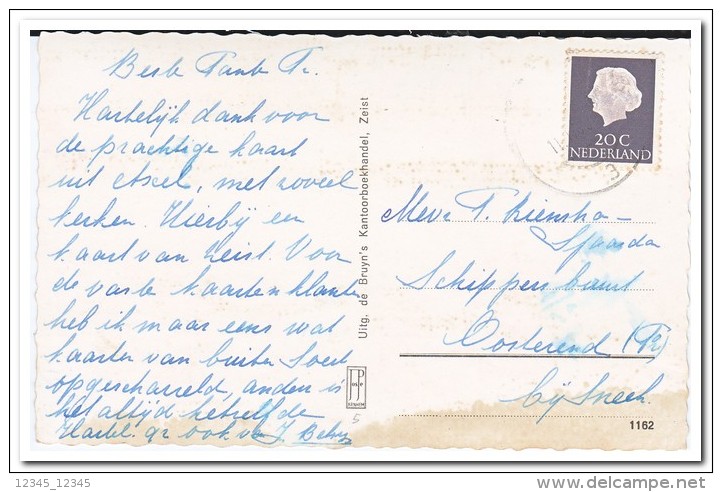 Beste Tante Tr.
Hartelijk dank voor
de prachtige kaart
uit Axel, met zoveel
kerken. Hierbij een
kaart van Zeist. Voor
de vaste kaartenklanten
heb ik maar eens wat
kaarten van buiten Soest
opgescharreld, anders is
het altijd hetzelfde
Hartel. gr ook van J.
Uitg. de Bruyn's Kantoorboekhandel, Zeist
JP
20 C
NEDERLAND
Mevr T. Riemska-
Sjaarda
Schippersbuurt
Oosterend (Fr)
bij Sneek.
5
1162
12345_12345
www.delcampe.net